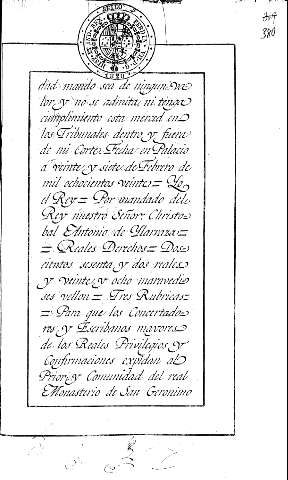 380
dad mando sea de ningun va
lor, y no se admita, ni tenga
cumplimiento esta merced en
los Tribunales dentro y fuera
de mi Corte. Fecha en Palacio
á veinte y siete de Febrero de
mil ochocientos veinte = Yo
el Rey = Por mandado del
Rey nuestro Señor, Christo
bal Antonio de Ylarraza =
= Reales Derechos = Dos
cientos sesenta y dos reales
y veinte y ocho maravedi
ses vellon = Tres Rubricas =
= Para que los Concertado
res y Escribanos mayores
de los Reales Privilegios y
Confirmaciones expidan al
Prior, y Comunidad del real
Monasterio de San Geronimo